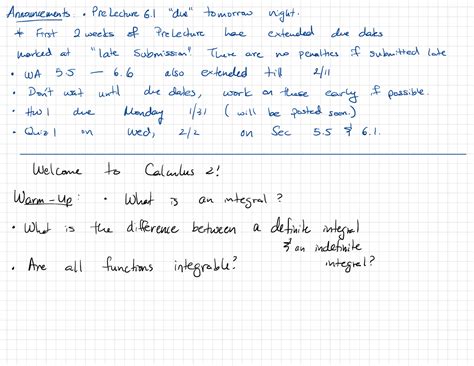 Announcements · PreLecture 6.1 "due" tomorrow night.
* First 2 weeks of PreLecture have extended due dates
marked at "late submission". There are no penalties if submitted late
· WA 5.5 — 6.6 also extended till 2/11
· Don't wait until due dates, work on these early if possible.
· HW1 due Monday 1/31 (will be posted soon.)
· Quiz 1 on Wed, 2/2 on Sec 5.5 & 6.1.
Welcome to Calculus 2!
Warm-Up: · What is an integral?
· What is the difference between a definite integral
& an indefinite
integral?
· Are all functions integrable?